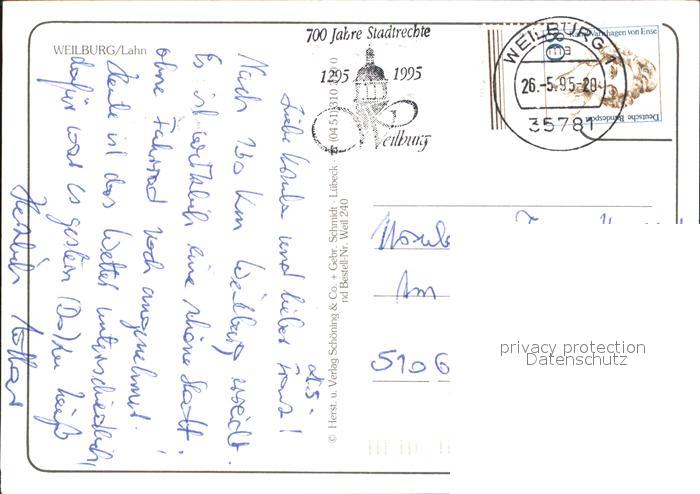 WEILBURG/Lahn
700 Jahre Stadtrechte
1295 1995
Weilburg
WEILBURG 1
26.-5.95-20
35781
Rahel Varnhagen von Ense
Deutsche Bundespost
© Herst. u. Verlag Schöning & Co. + Gebr. Schmidt · Lübeck
nd Bestell-Nr. Weil 240
Liebe und lieber Franz!
Nach 230 km Weilburg erreicht.
Es ist wirklich eine schöne Stadt.
ohne Fahrrad noch angenehmer!
Heute ist das Wetter unterschiedlich,
dafür war es gestern (Do) zu heiß
Herzlich Lothar
Am
5106
privacy protection
Datenschutz